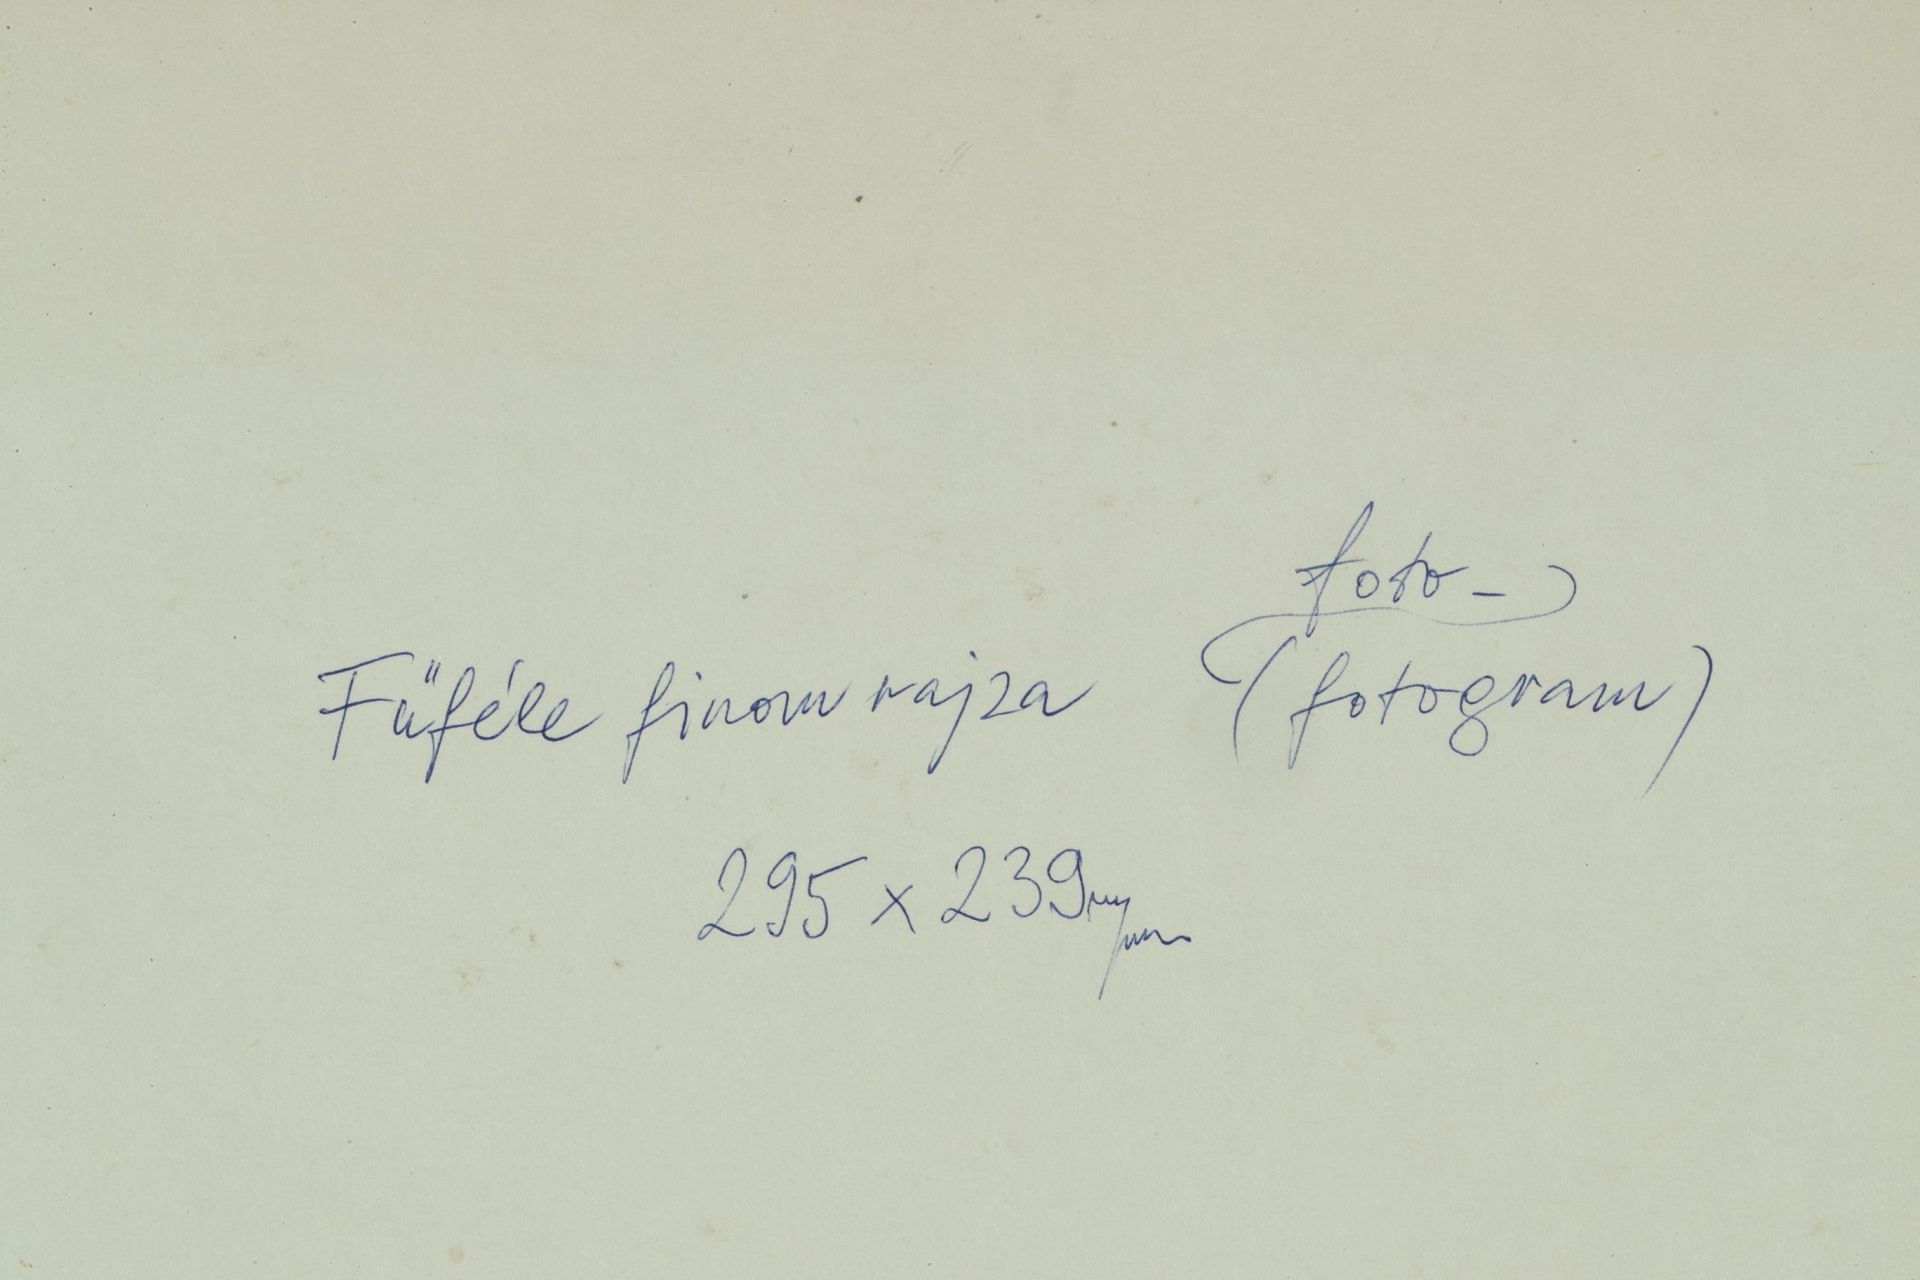 foto-
Fűféle finom rajza (fotogram)
295 x 239 mm